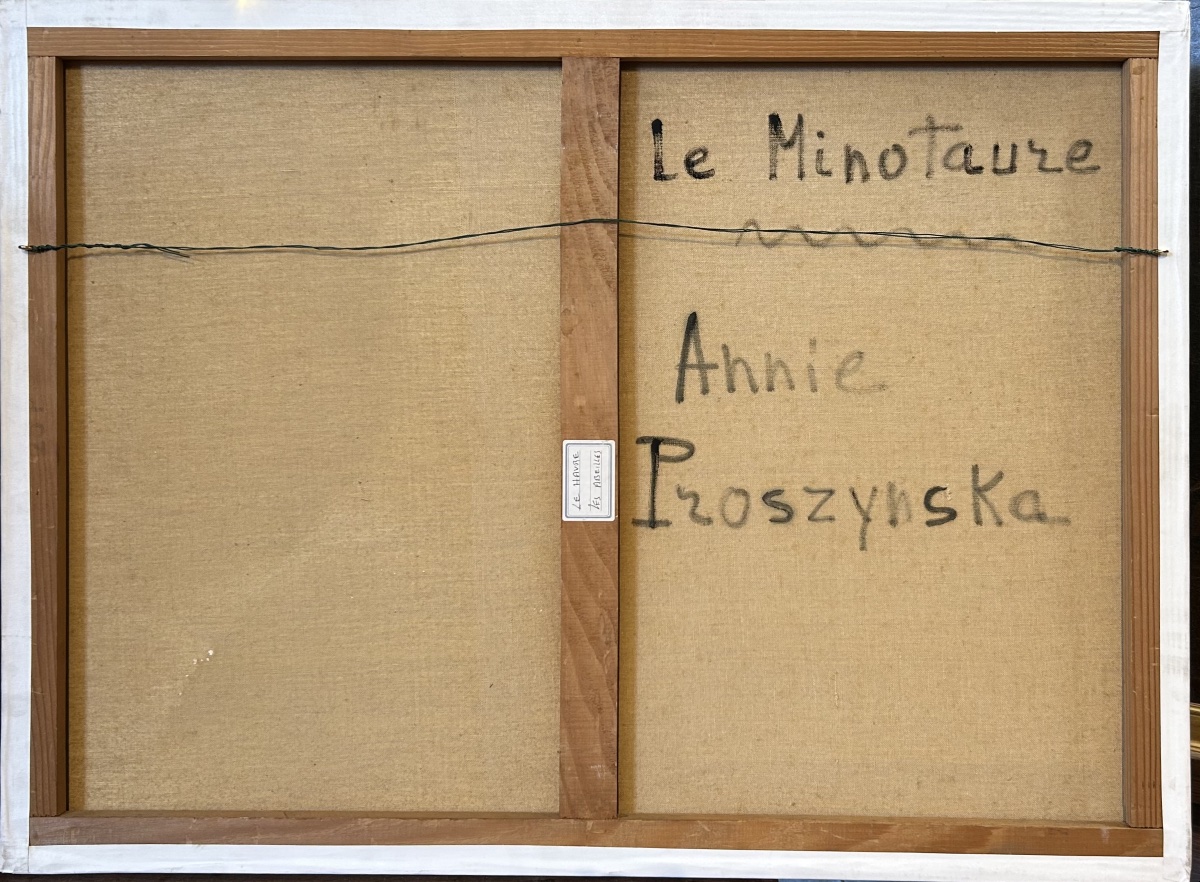 Le Minotaure
Annie
Proszynska
LE HAVRE
LES ABEILLES